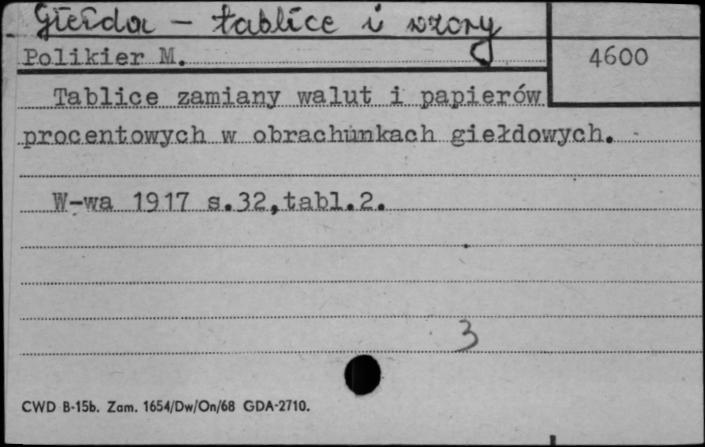 Giełda - tablice i wzory
Polikier M.
4600
Tablice zamiany walut i papierów
procentowych w obrachunkach giełdowych.
W-wa 1917 s.32,tabl.2.
3
CWD B-15b. Zam. 1654/Dw/On/68 GDA-2710.